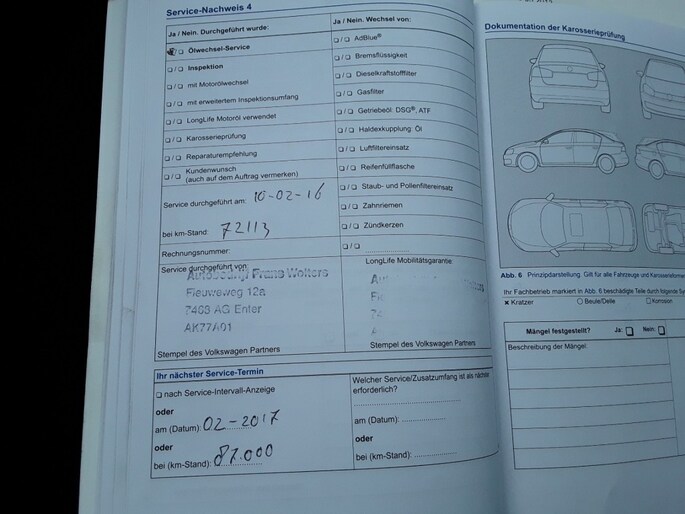 Service-Nachweis 4
Ja / Nein. Durchgeführt wurde:
Ölwechsel-Service
Inspektion
mit Motorölwechsel
mit erweitertem Inspektionsumfang
LongLife Motoröl verwendet
Karosserieprüfung
Reparaturempfehlung
Kundenwunsch
(auch auf dem Auftrag vermerken)
Service durchgeführt am: 10-02-16
bei km-Stand: 72113
Rechnungsnummer:
Service durchgeführt von:
Autobedrijf Frans Wolters
Fleuweweg 12a
7468 AG Enter
AK77A01
Stempel des Volkswagen Partners
Ja / Nein. Wechsel von:
AdBlue®
Bremsflüssigkeit
Dieselkraftstofffilter
Gasfilter
Getriebeöl: DSG®, ATF
Haldexkupplung Öl
Luftfiltereinsatz
Reifenfüllflasche
Staub- und Pollenfiltereinsatz
Zahnriemen
Zündkerzen
LongLife Mobilitätsgarantie
Stempel des Volkswagen Partners
Ihr nächster Service-Termin
nach Service-Intervall-Anzeige
oder
am (Datum): 02-2017
oder
bei (km-Stand): 87.000
Welcher Service/Zusatzumfang ist als nächster
erforderlich?
am (Datum):
oder
bei (km-Stand):
Dokumentation der Karosserieprüfung
Abb. 6 Prinzipdarstellung. Gilt für alle Fahrzeuge und
Ihr Fachbetrieb markiert in Abb. 6 beschädigte Teile durch folgende
Kratzer Beule/Delle Korrosion
Mängel festgestellt? Ja: Nein:
Beschreibung der Mängel: